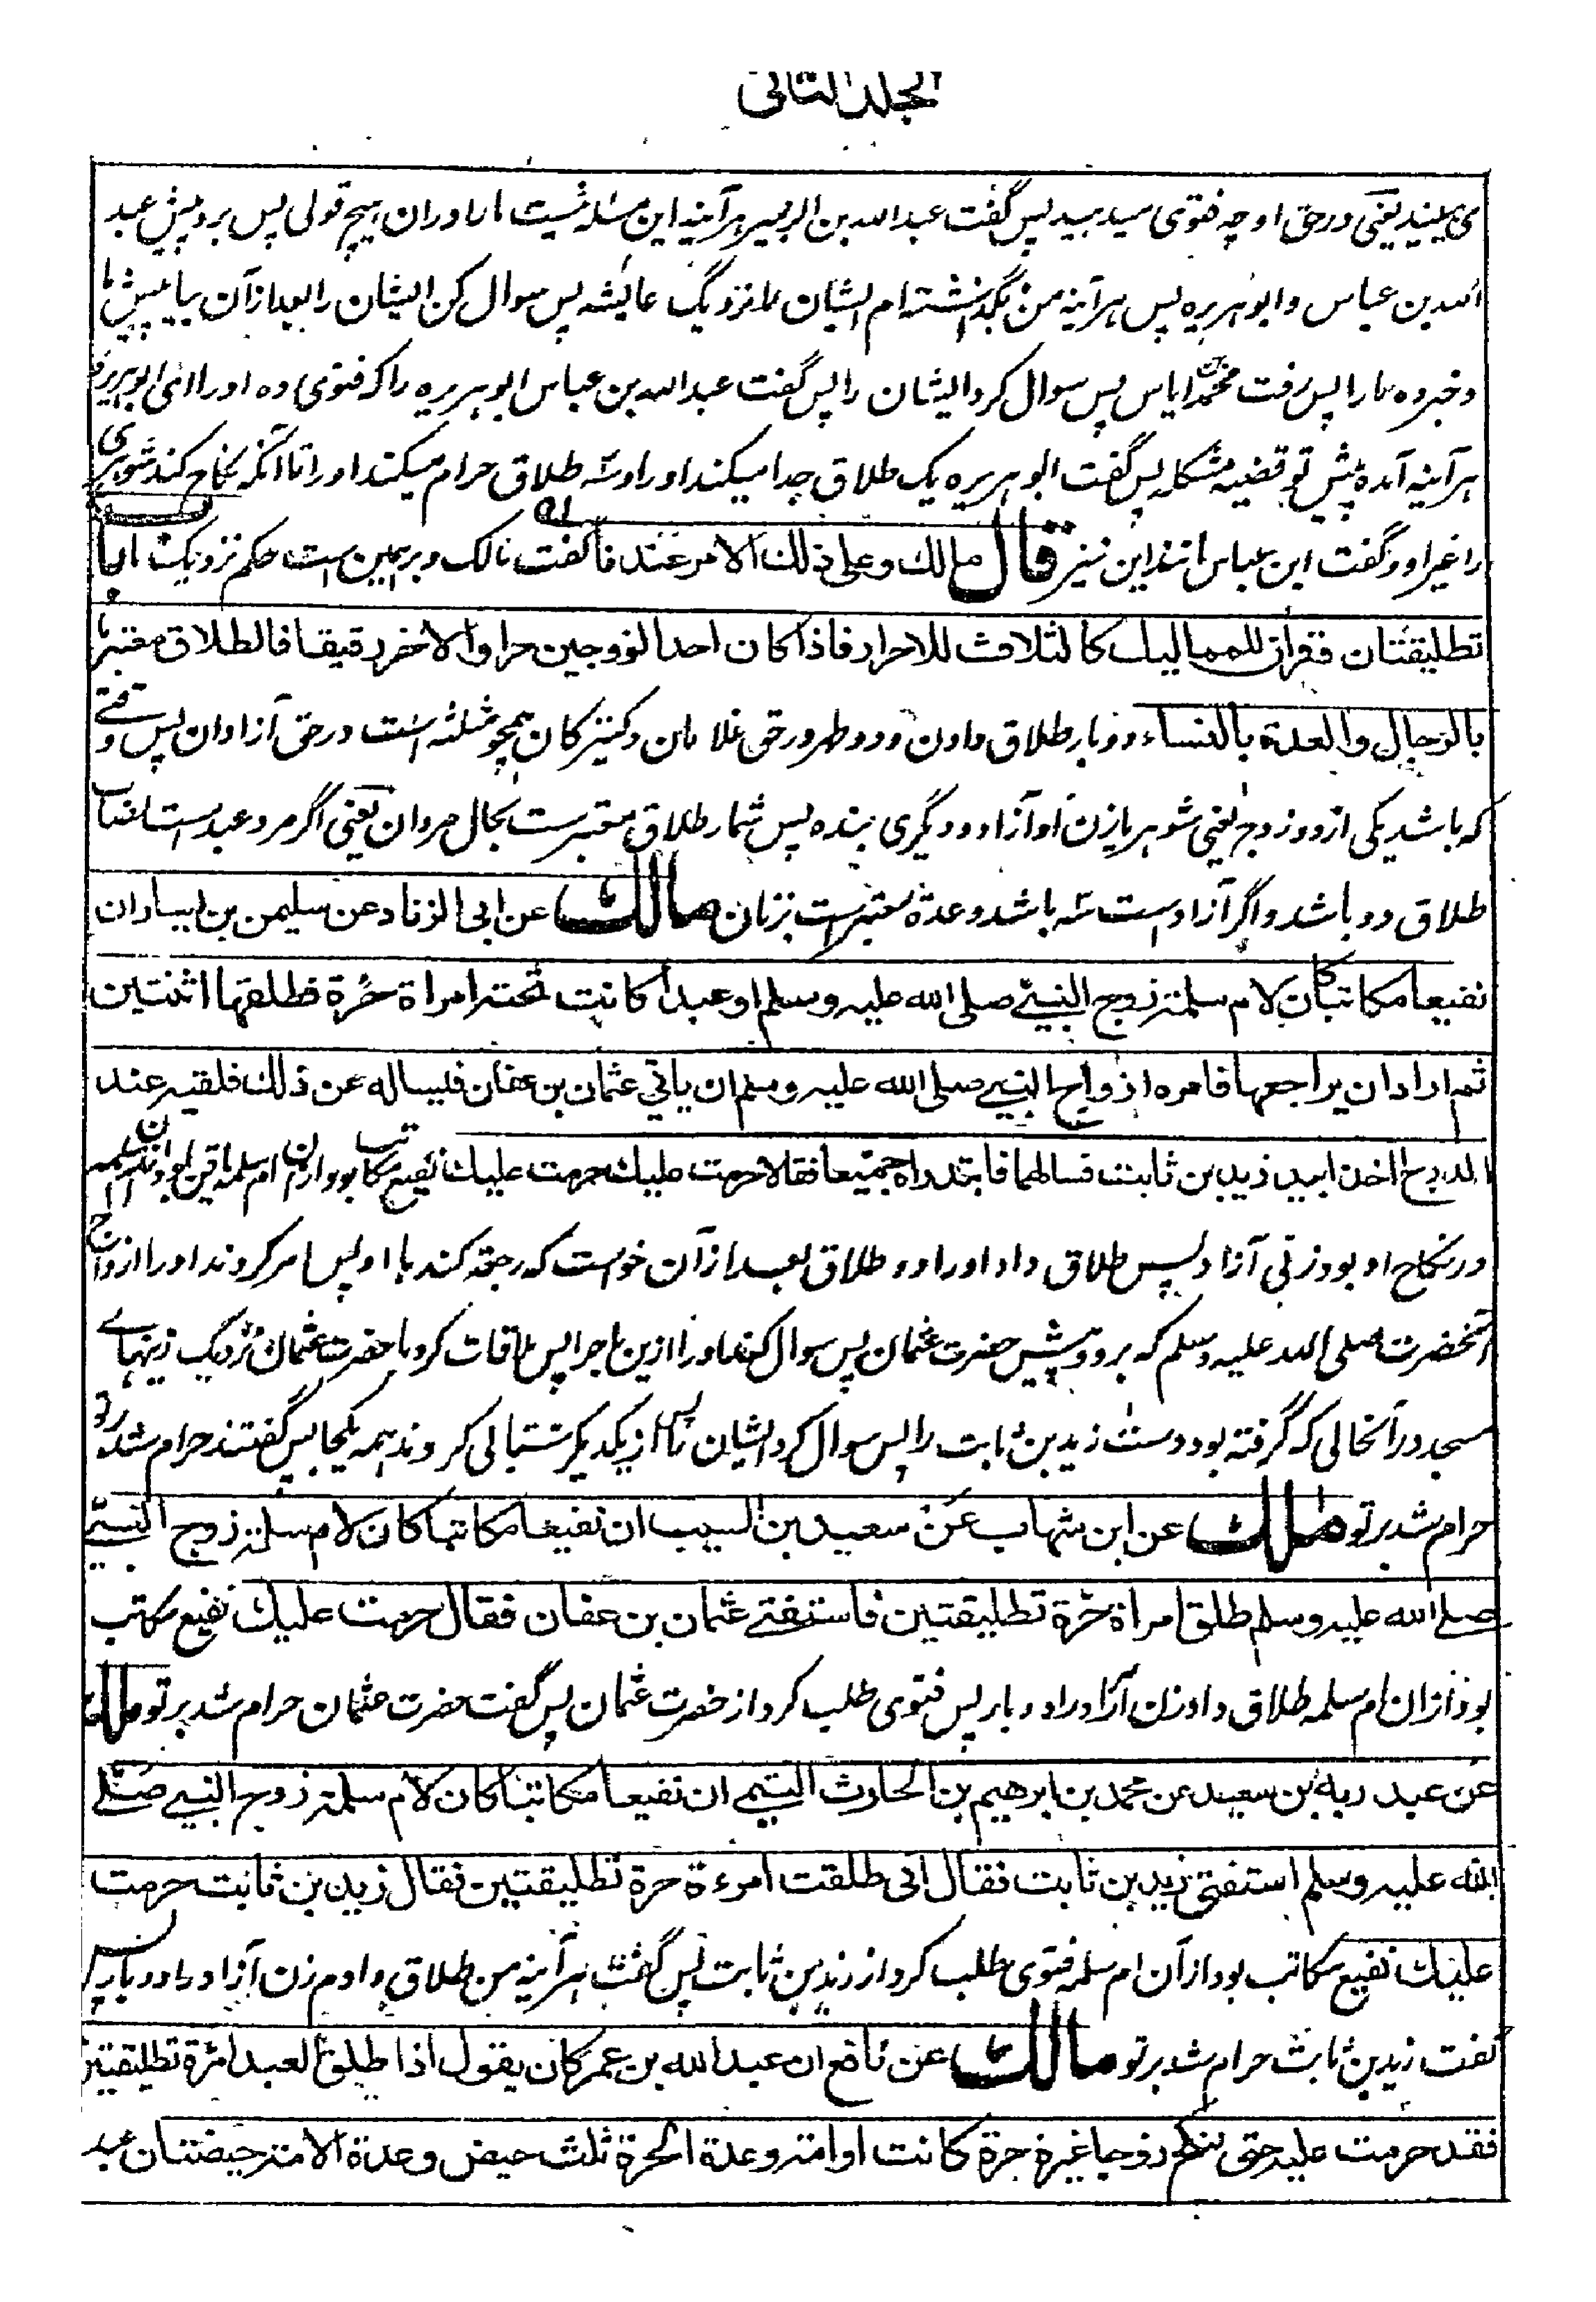 الجلد الثانی
می بینید یعنی در حق او چه فتوی میدهید پس گفت عبد الله بن الزبیر هر آینه این مسئله نیست ما را دران هیچ قولی پس برو پیش عبد
الله بن عباس و ابو هریره پس هر آینه من بگذاشته ام ایشان را نزدیک عایشه پس سوال کن ایشان را بعد ازان بیا پیش ما
و خبر ده ما را پس رفت محمد بن ایاس پس سوال کرد ایشان را پس گفت عبد الله بن عباس ابو هریره را که فتوی ده او را ای ابو هریره
هر آینه آمده پیش تو قضیه مشکله پس گفت ابو هریره یک طلاق جدا میکند او را و سه طلاق حرام میکند او را تا آنکه نکاح کند شوهری
را غیر او و گفت ابن عباس مانند این نیز قال مالك وعلى ذلك الامر عندنا گفت مالک و بر همین ست حکم نزدیک ما باب
تطليقتان وقرآن للمماليك كالثلاث للاحرار فاذا كان احد الزوجين حرا والاخر رقيقا فالطلاق معتبر
بالرجال والعدة بالنساء دو بار طلاق دادن و دو طهر در حق غلامان و کنیزکان همچو ثلثه است در حق آزادان پس وقتے
که باشد یکی از دو زوج یعنی شوهر یا زن او آزاد و دیگری بنده پس شمار طلاق معتبر ست بحال مردان یعنی اگر مرد عبد ست نصاب
طلاق دو باشد و اگر آزاد ست سه باشد و عدة معتبر است بزنان مالك عن ابي الزناد عن سليمن بن يسار ان
نفيعا مكاتبا كان لام سلمة زوج النبي صلى الله عليه وسلم او عبدا كانت تحته امراة حرة فطلقها اثنتين
ثم اراد ان يراجعها فامره ازواج النبي صلى الله عليه وسلم ان ياتي عثمان بن عفان فليساله عن ذلك فلقيه عند
الدرج اخذا بيد زيد بن ثابت فسالهما فابتدراه جميعا فقالا حرمت عليك حرمت عليك نفیع مکاتب بود ازان ام سلمه
در نکاح او بود زنی آزاد پس طلاق داد او را دو طلاق بعد ازان خواست که رجعة کند با او پس امر کردند او را ازواج
آنحضرت صلی الله علیه وسلم که برود پیش حضرت عثمان پس سوال کند او را ازین ماجرا پس ملاقات کرد با حضرت عثمان نزدیک زینهاے
مسجد در آنحالی که گرفته بود دست زید بن ثابت را پس سوال کرد ایشان را پس از یکدیگر شتابی کردند همه یکجا پس گفتند حرام شد بر تو
حرام شد بر تو مالك عن ابن شهاب عن سعيد بن المسيب ان نفيعا مكاتبا كان لام سلمة زوج النبي
صلى الله عليه وسلم طلق امراة حرة تطليقتين فاستفتى عثمان بن عفان فقال حرمت عليك نفیع مکاتب
بود ازان ام سلمه طلاق داد زن آزاد را دو بار پس فتوی طلب کرد از حضرت عثمان پس گفت حضرت عثمان حرام شد بر تو مالك
عن عبد ربه بن سعيد عن محمد بن ابرهيم بن الحارث التيمي ان نفيعا مكاتبا كان لام سلمة زوج النبي صلى
الله عليه وسلم استفتى زيد بن ثابت فقال اني طلقت امرءة حرة تطليقتين فقال زيد بن ثابت حرمت
عليك نفیع مکاتب بود ازان ام سلمه فتوی طلب کرد از زید بن ثابت پس گفت هر آینه من طلاق دادم زن آزاد را دو بار پس
گفت زید بن ثابت حرام شد بر تو مالك عن نافع ان عبد الله بن عمر كان يقول اذا طلق العبد امرئة تطليقتين
فقد حرمت عليه حتى تنكح زوجا غيره حرة كانت او امة وعدة الحرة ثلث حيض وعدة الامة حيضتان عبد